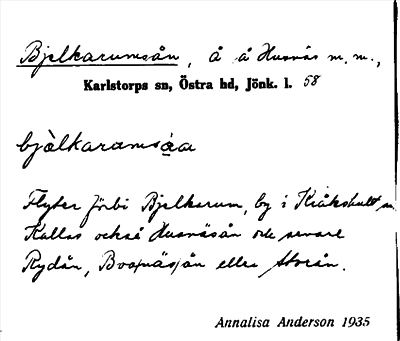 Bjelkarumsån, å å Husnäs m.m.,
Karlstorps sn, Östra hd, Jönk. l. 58
bjälkaramsåa
Flyter förbi Bjelkarum, by i Kråkshult sn
Kallas också Husnäsån och senare
Rydån, Bo(näs)ån eller Storån.
Annalisa Anderson 1935